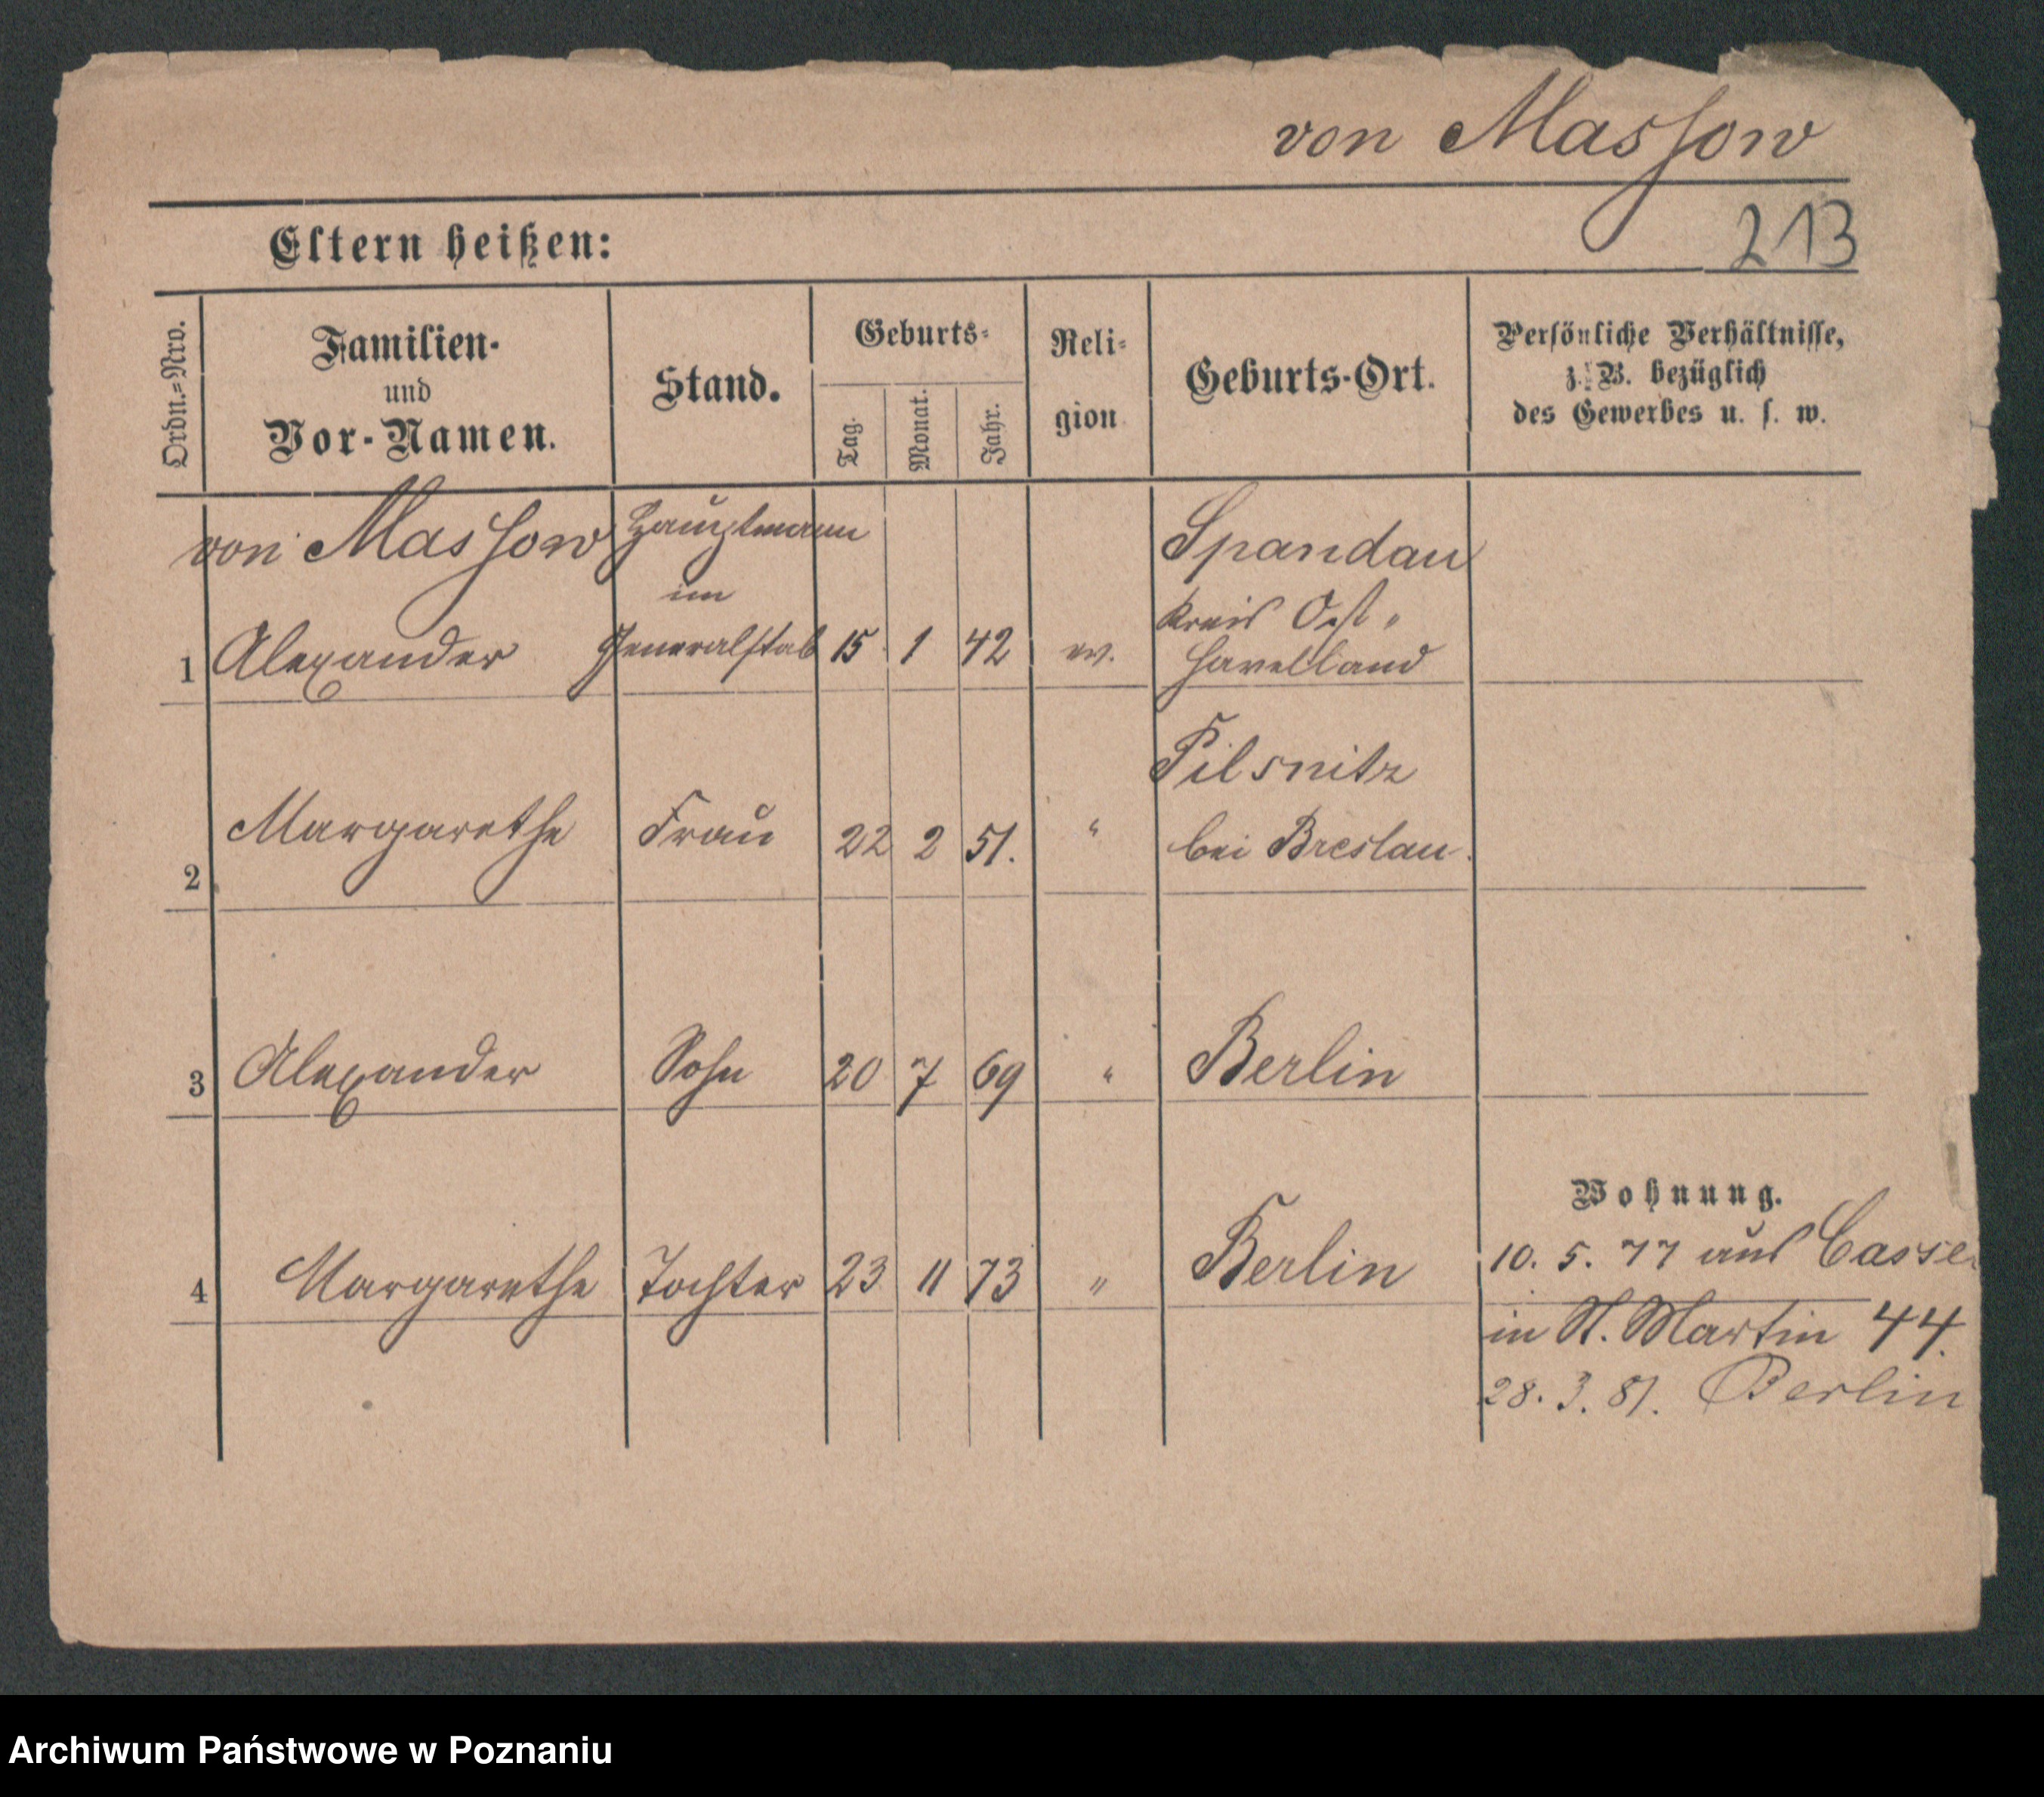 von Massow
213
Eltern heißen:
Ordn.=Nro.
Familien-
und
Vor-Namen.
Stand.
Geburts-
Tag.
Monat.
Jahr.
Reli-
gion
Geburts-Ort.
Persönliche Verhältnisse,
z. B. bezüglich
des Gewerbes u. s. w.
von Massow Hauptmann Spandau
im Kreis Ost-
1 Alexander Generalstab 15 1 42 ev. Havelland
Pilsnitz
2 Margarethe Frau 22 2 51. " bei Breslau.
3 Alexander Sohn 20 7 69 " Berlin
Wohnung.
4 Margarethe Tochter 23 11 73 " Berlin 10. 5. 77 aus Cassel
in St. Martin 44.
28. 3. 81. Berlin
Archiwum Państwowe w Poznaniu